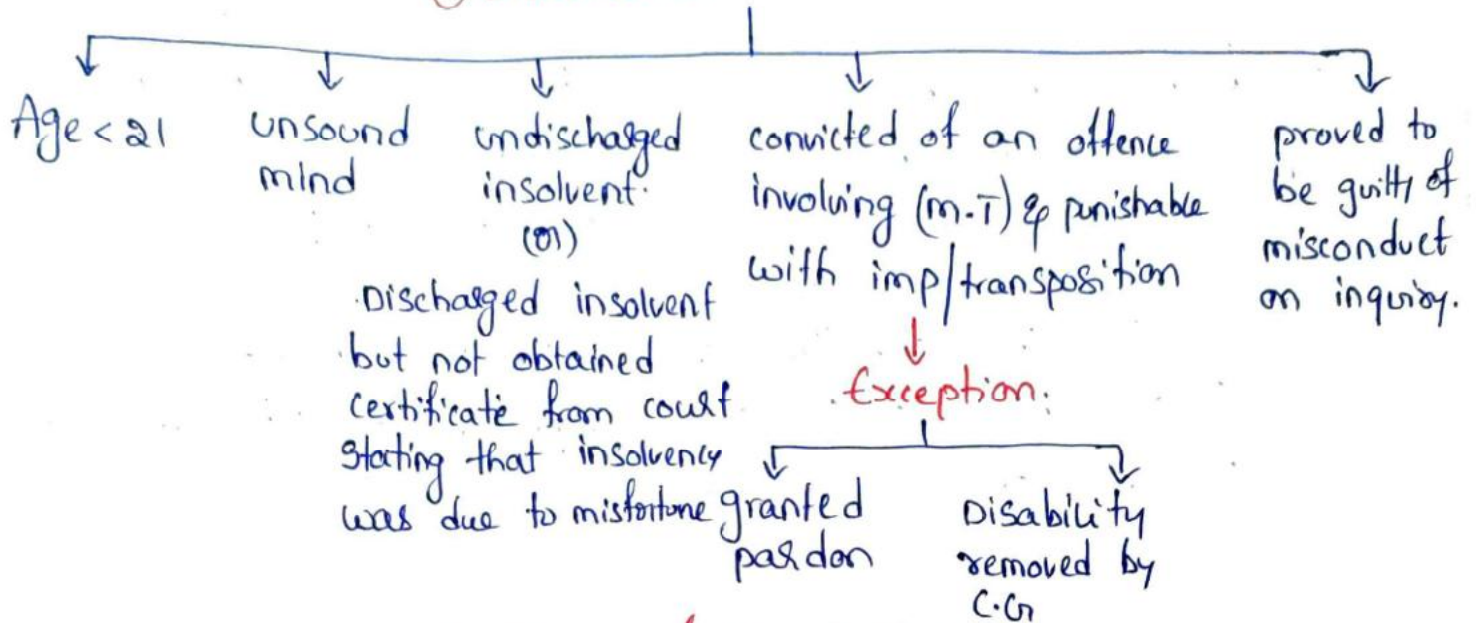 Age < 21
unsound
mind
undischarged
insolvent.
(or)
Discharged insolvent
but not obtained
certificate from court
stating that insolvency
was due to misfortune
convicted of an offence
involving (m.T) & punishable
with imp/transposition
Exception.
granted
pardon
Disability
removed by
C.G
proved to
be guilty of
misconduct
on inquiry.